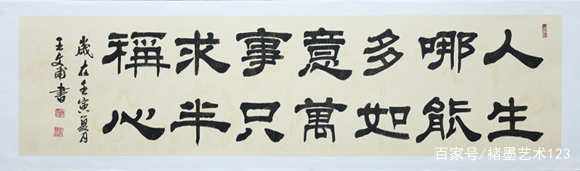 人生
哪能
多如
意萬
事只
求半
稱心
歲在壬寅夏月
王文甫書
百家号/楮墨艺术123